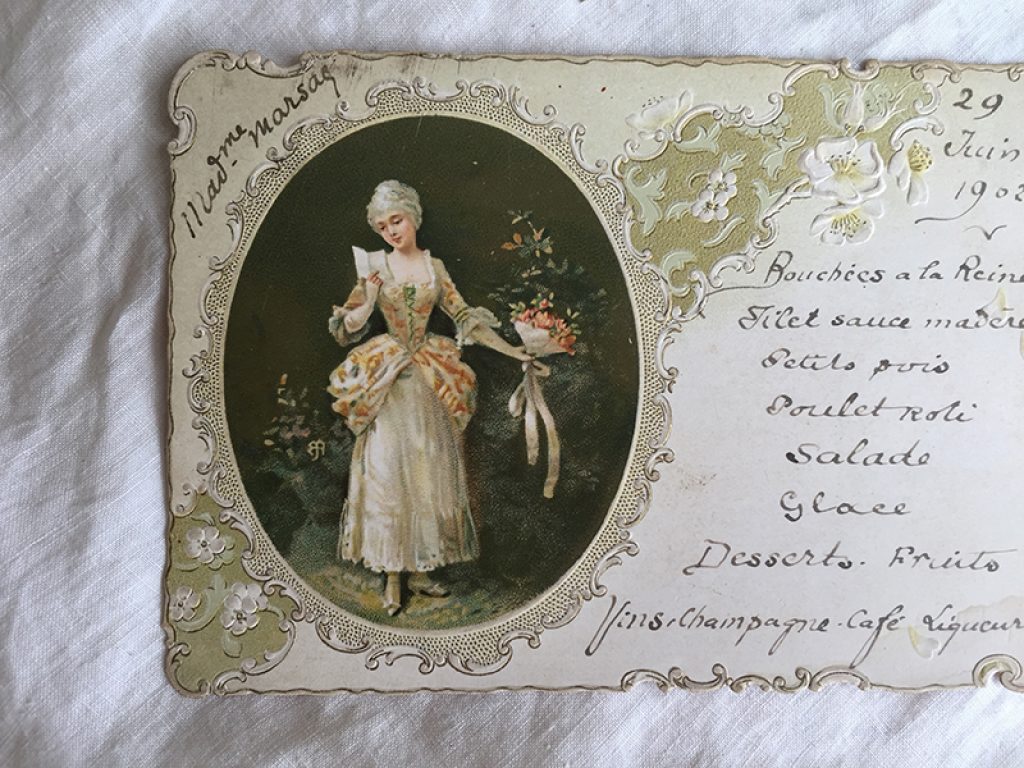 Mad.me Marsac
29
Juin
190
Bouchées a la Reine
Filet sauce madère
Petits pois
Poulet Roti
Salade
Glace
Desserts. Fruits
Vins. Champagne. Café Liqueur